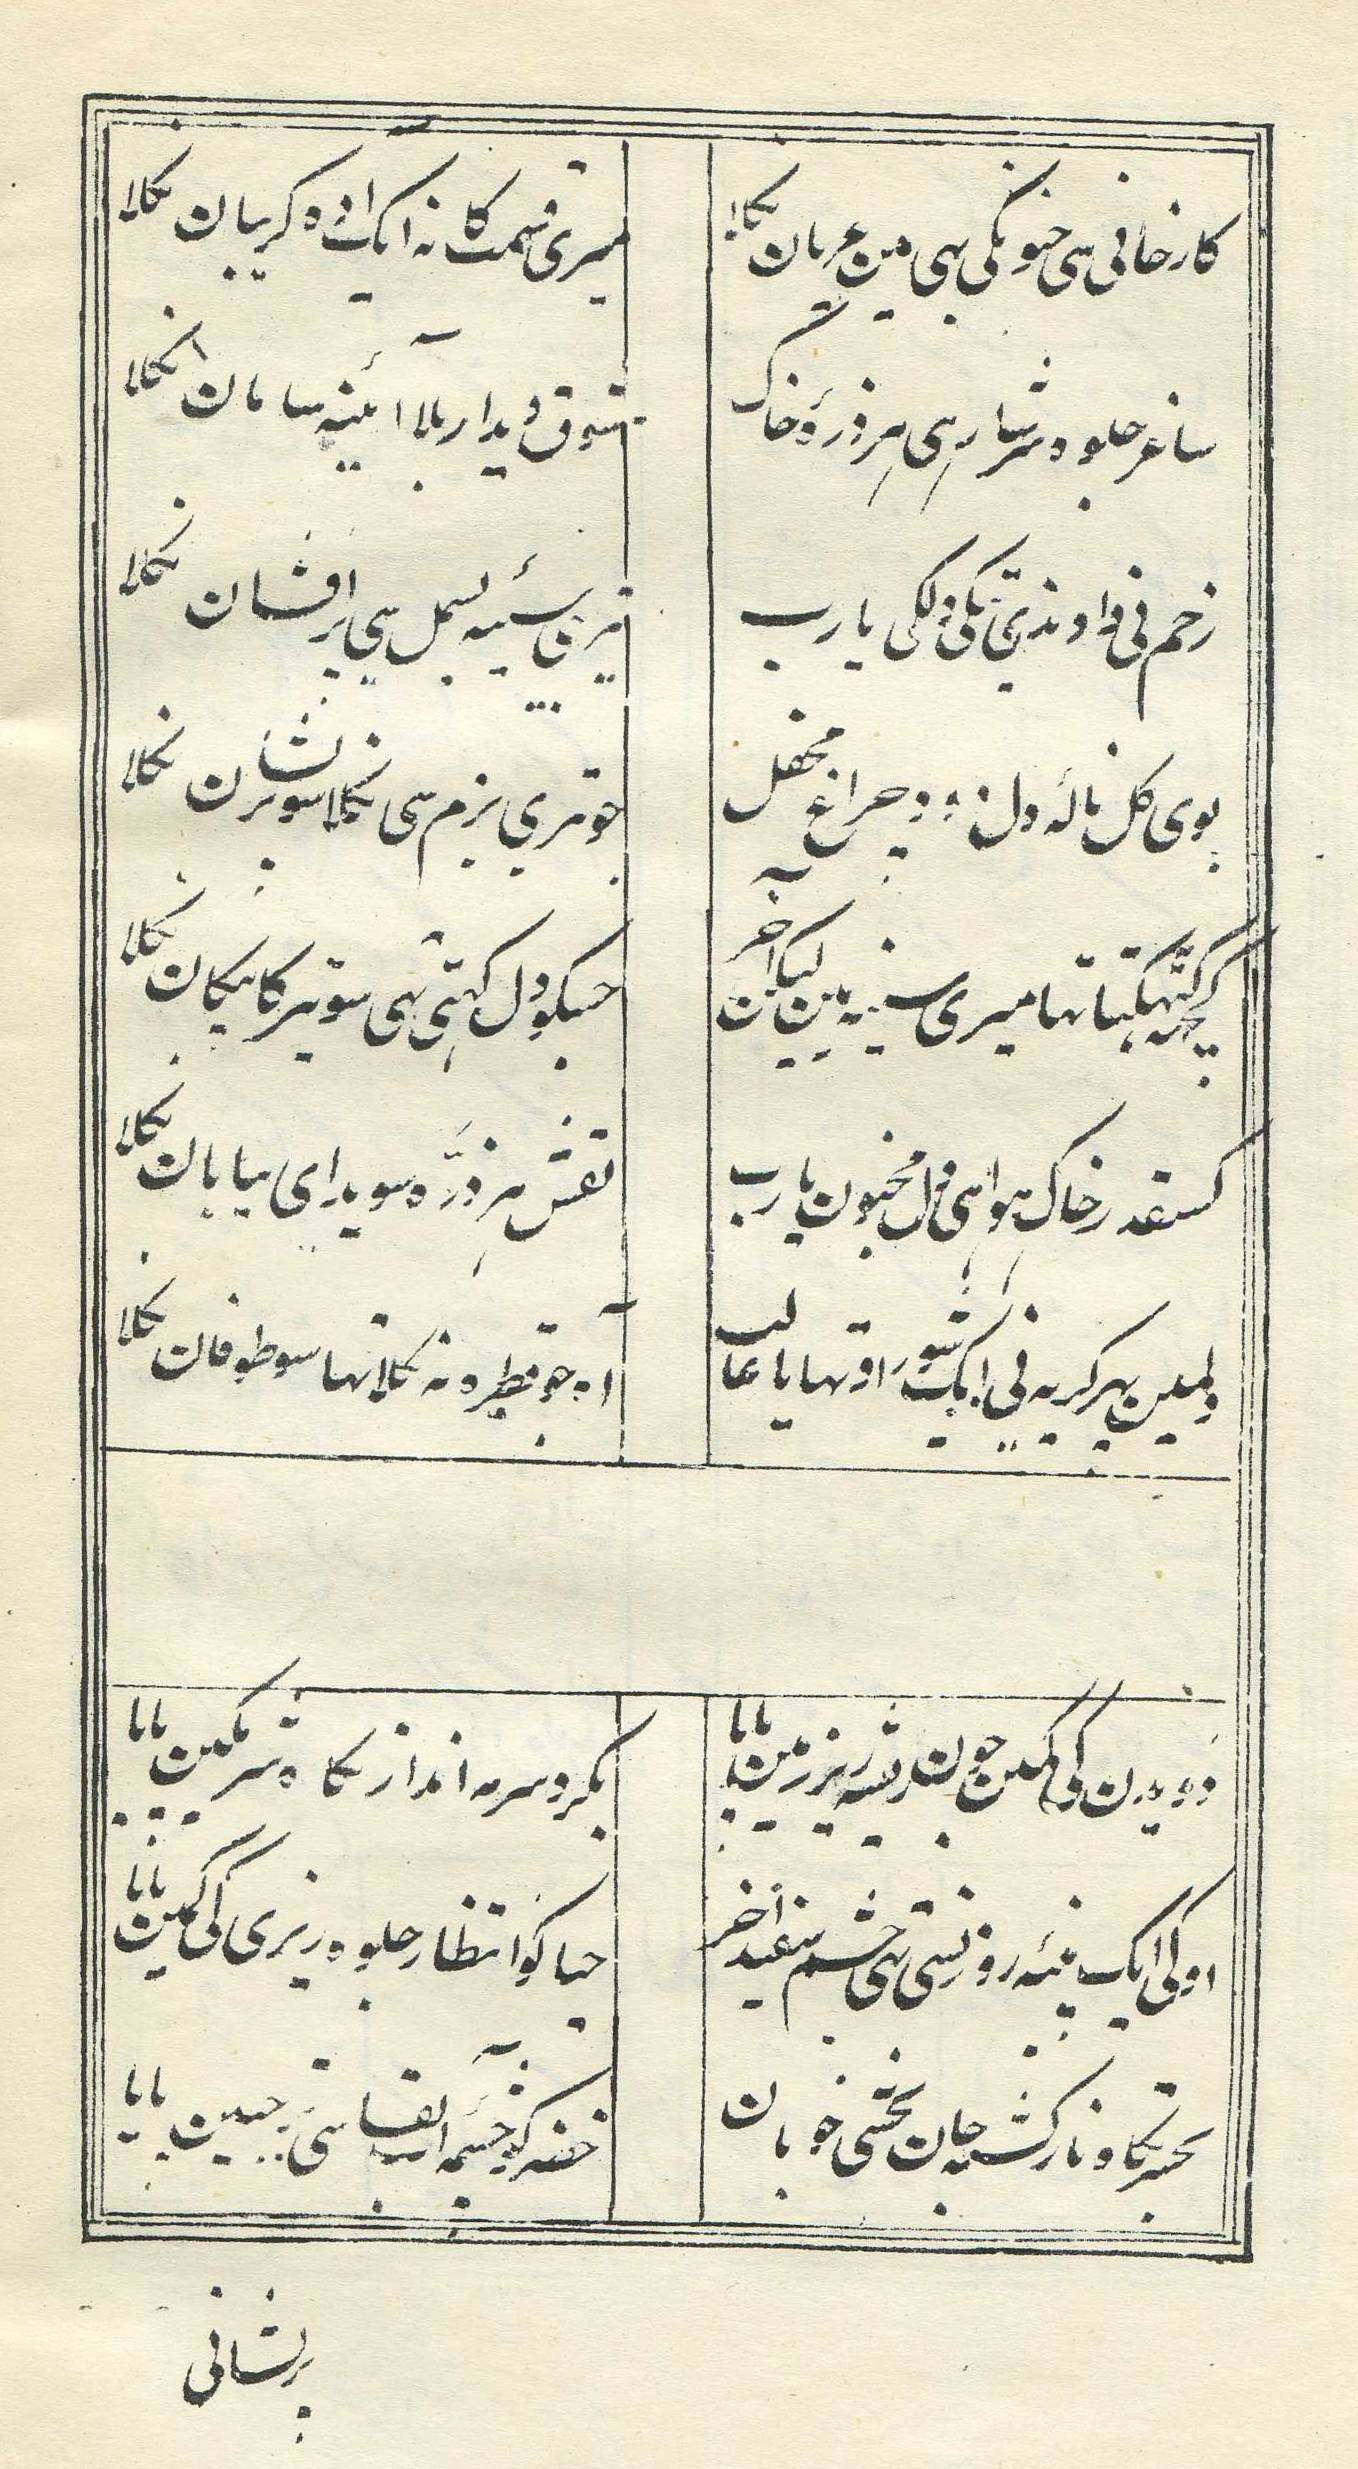 کارخانی سی جنونکی بہی مین عریان نکلا میری قسمت کا نہ ایک ادہ کریبان نکلا
ساغر جلوہ سرشار ہی ہر ذرۂ خاک شوق دیدار بلا آئینہ سامان نکلا
زخم نی داد ندی تنکی دلکی یارب تیر بہی سینۂ بسمل سی پر افشان نکلا
بوی کل نالۂ دل دود چراغ محفل جو تری بزم سی نکلا سو پریشان نکلا
کچہہ کہٹکتا تہا میری سینہ مین لیکن آخر جسکو دل کہتی تہی سو تیر کا پیکان نکلا
کسقدر خاک ہوا ہی دل مجنون یارب نقش ہر ذرّہ سویدای بیابان نکلا
دلمین پہر کریہ نی ایک شور اوتہایا غالب آہ جو قطرہ نہ نکلا تہا سو طوفان نکلا
دویدن کی کمین جون ریشہ زیر زمین پایا بکرد سرمہ انداز نکاہ شرمکین پایا
اوکی ایک پنبۂ روزنسی تہی چشم سفید آخر حیا کو انتظار جلوہ ریزی کی کمین پایا
بحسرتکاہ ناز کشتۂ جان بخشی خوبان خضر کو چشمۂ آب بقا سی تر جبین پایا
پریشانی